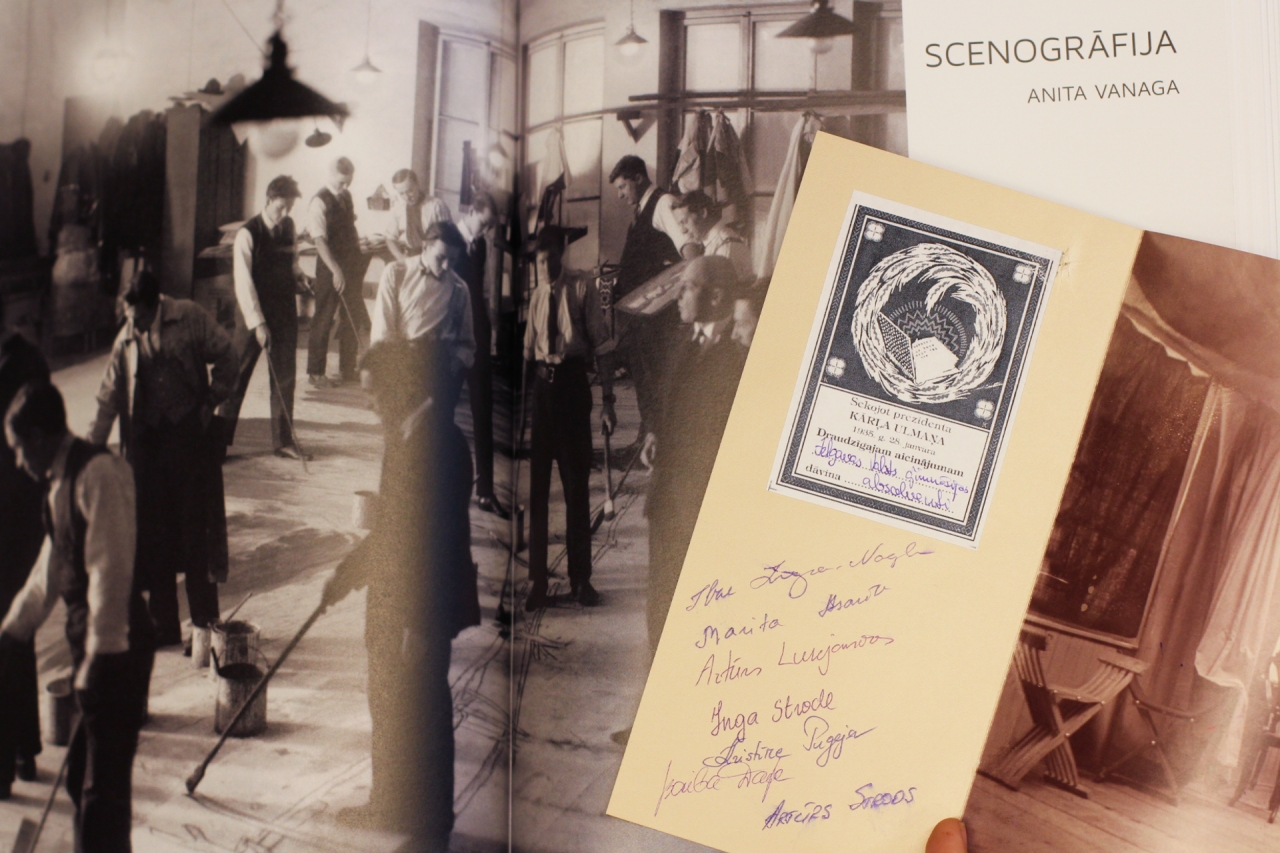 SCENOGRĀFIJA
ANITA VANAGA
Sekojot prezidenta
KĀRĻA ULMAŅA
1935. g. 28. janvara
Draudzīgajam aicinājumam
Jelgavas Valsts ģimnāzijas
dāvina absolventi
Marita
Artūrs
Inga Strode
Kristīne Pugeja
ARTŪRS STRODS